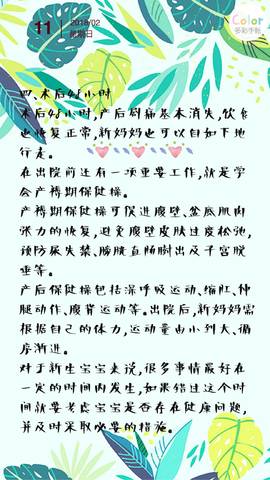 11
2018/02
星期日
Color
多彩手帐
四.术后48小时
术后48小时,产后剧痛基本消失,饮食
也恢复正常,新妈妈也可以自如下地
行走。
在出院前还有一项重要工作,就是学
会产褥期保健操。
产褥期保健操可促进腹壁、盆底肌肉
张力的恢复,避免腹壁皮肤过度松弛,
预防尿失禁、膀胱直肠膨出及子宫脱
垂等。
产后保健操包括深呼吸运动、缩肛、伸
腿动作、腹背运动等。出院后,新妈妈需
根据自己的体力,运动量由小到大、循
序渐进。
对于新生宝宝来说,很多事情最好在
一定的时间内发生,如果错过这个时
间就要考虑宝宝是否存在健康问题,
并及时采取必要的措施。